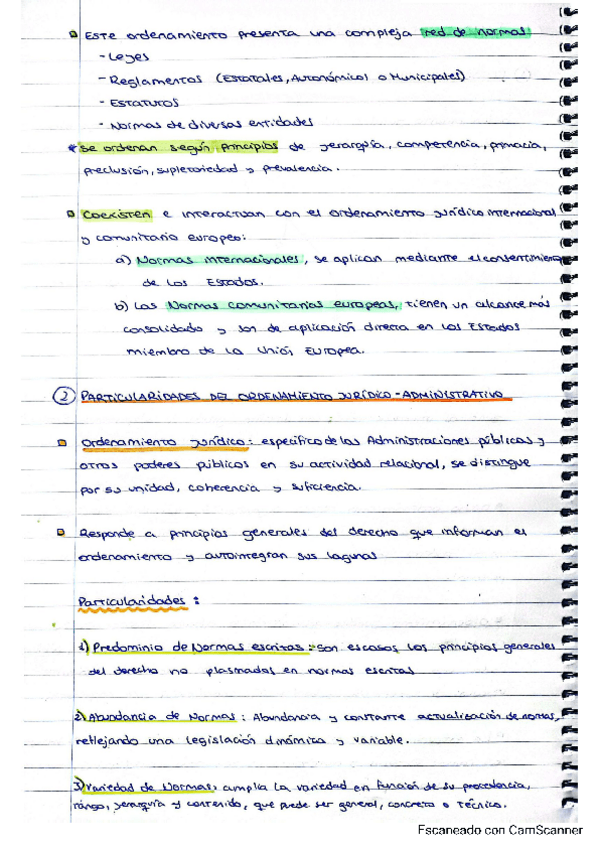 Este ordenamiento presenta una compleja red de normas:
- Leyes
- Reglamentos (Estatales, Autonómicos o Municipales)
- Estatutos
- Normas de diversas entidades
se ordenan según principios de jerarquía, competencia, primacia,
preclusión, supletoriedad y prevalencia.
Coexisten e interactúan con el ordenamiento jurídico internacional
y comunitario europeo:
a) Normas internacionales, se aplican mediante el consentimiento
de los Estados.
b) Las Normas comunitarias europeas, tienen un alcance más
consolidado y son de aplicación directa en los Estados
miembro de la Unión Europea.
2 PARTICULARIDADES DEL ORDENAMIENTO JURÍDICO-ADMINISTRATIVO
Ordenamiento jurídico: especifico de las Administraciones públicas y
otros poderes públicos en su actividad relacional, se distingue
por su unidad, coherencia y suficiencia.
Responde a principios generales del derecho que informan el
ordenamiento y autointegran sus lagunas
Particularidades:
1) Predominio de Normas escritas: son escasos los principios generales
del derecho no plasmados en normas escritas
2) Abundancia de Normas: Abundancia y constante actualización de normas,
reflejando una legislación dinámica y variable.
3) Variedad de Normas: amplia la variedad en función de su procedencia,
rango, jerarquía y contenido, que puede ser general, concreto o técnico.
Escaneado con CamScanner